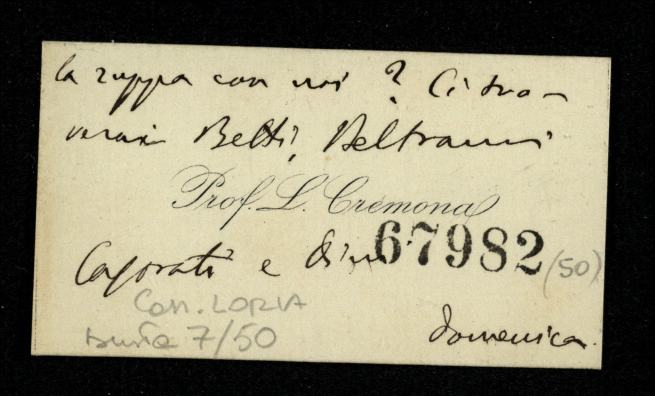 la zuppa con noi? Ci tro-
verai Betti, Beltrami
Prof. L. Cremona
Caporati e Dini
67982
(50)
Con. LORIA
Busta 7/50
domenica.